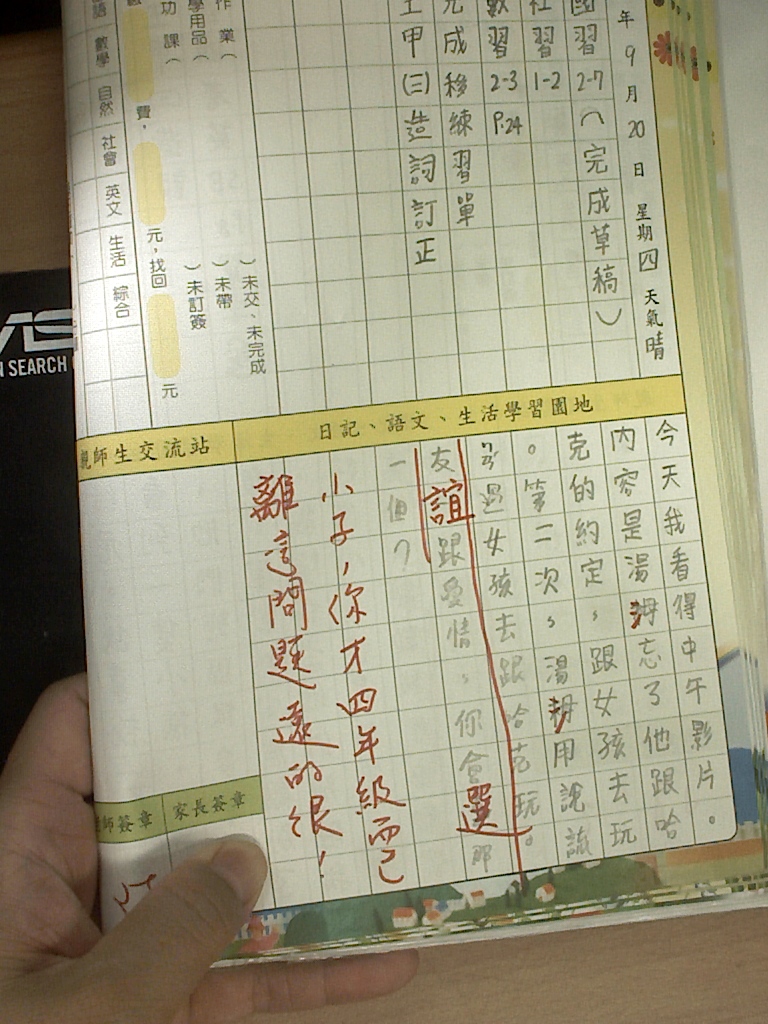 年9月20日 星期四 天氣晴
國習2-7(完成草稿)
社習1-2
數習2-3 P.24
完成移練習單
甲(三)造詞訂正
作業(  )未交、未完成
學用品(  )未帶
功課(  )未訂簽
費, 元,找回 元
語 數學 自然 社會 英文 生活 綜合
日記、語文、生活學習園地
今天我看得中午影片。
內容是湯姆忘了他跟哈
克的約定,跟女孩去玩
。第二次,湯姆用說謊
過女孩去跟哈克玩。
友誼跟愛情,你會選那
一個?
小子,你才四年級而已
離這問題遠的很!
親師生交流站
家長簽章
師簽章
SEARCH